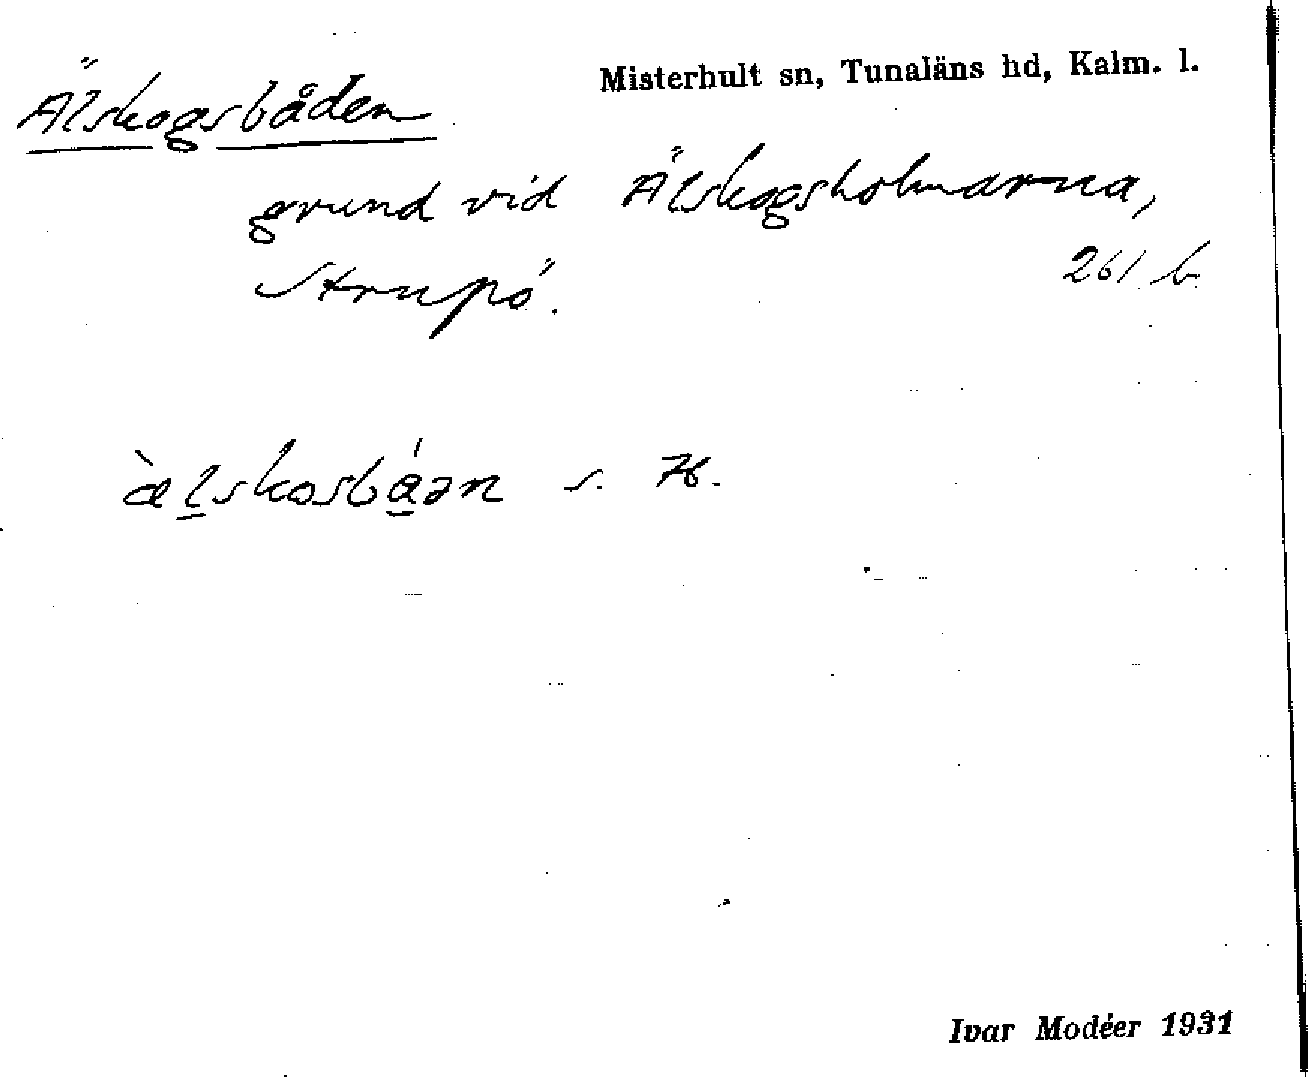 Misterhult sn, Tunaläns hd, Kalm. l.
Älskogsbåden
grund vid Älskogsholmarna,
Strupö.
261 b.
æ̀l̠skosbá̠ən s. H.
Ivar Modéer 1931